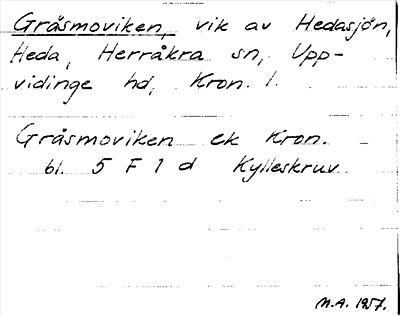 Gråsmoviken, vik av Hedasjön,
Heda, Herråkra sn, Upp-
vidinge hd, Kron. l.
Gråsmoviken ek Kron.
bl. 5 F 1 d Kylleskruv
M.A. 1957.